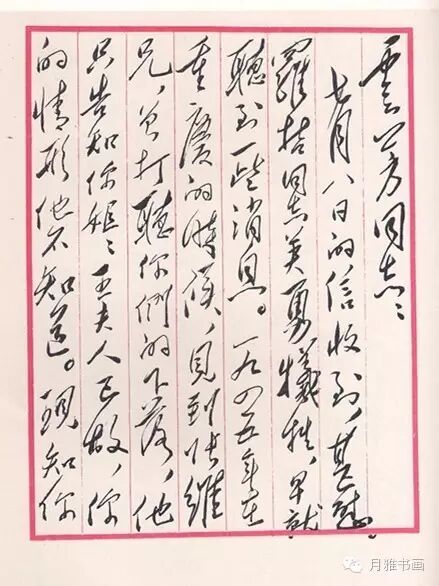 雲芳同志：
七月八日的信收到，甚慰。
羅哲同志英勇犧牲，早就
聽到一些消息。一九四五年在
重慶的時候，見到张維
兄，曾打聽你們的下落，他
只告知你姐〻王夫人已故，你
的情形他不知道。現知你
月雅书画